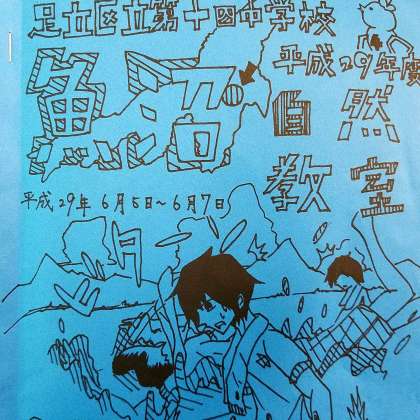 足立区立第十四中学校
平成29年度
魚沼
自然
教室
平成29年6月5日～6月7日